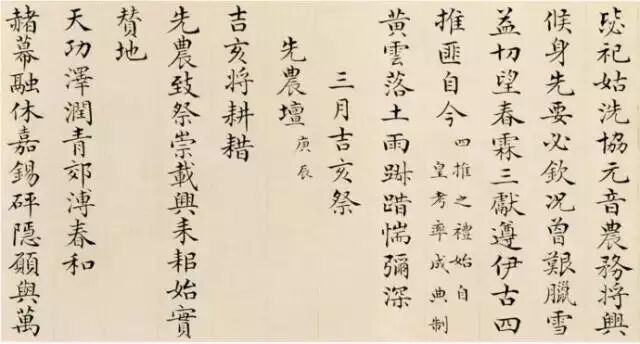 毖祀姑洗協元音農務將興
候身先要必欽况曾艱臘雪
益切望春霖三獻遵伊古四
推匪自今
四推之禮始自
皇考率成典制
黃雲落土雨踧踖惴彌深
三月吉亥祭
先農壇 庚辰
吉亥将耕耤
先農致祭崇載興耒耜始實
賛地
天功澤潤青郊溥春和
赭幕融休嘉錫砰隱願與萬